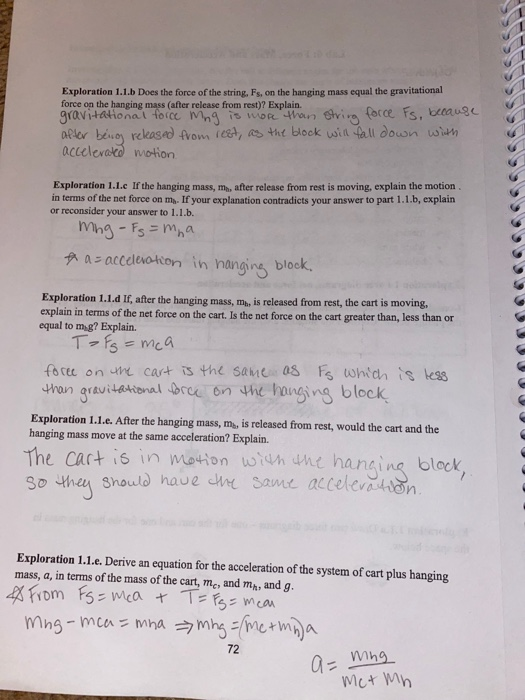 Exploration 1.1.b Does the force of the string, Fs, on the hanging mass equal the gravitational
force on the hanging mass (after release from rest)? Explain.
gravitational force mhg is more than string force Fs, because
after being released from rest, as the block will fall down with
accelerated motion
Exploration 1.1.c If the hanging mass, mh, after release from rest is moving, explain the motion
in terms of the net force on mh. If your explanation contradicts your answer to part 1.1.b, explain
or reconsider your answer to 1.1.b.
mhg - Fs = mha
a = acceleration in hanging block.
Exploration 1.1.d If, after the hanging mass, mh, is released from rest, the cart is moving,
explain in terms of the net force on the cart. Is the net force on the cart greater than, less than or
equal to mhg? Explain.
T = Fs = mca
force on the cart is the same as Fs which is less
than gravitational force on the hanging block
Exploration 1.1.e. After the hanging mass, mh, is released from rest, would the cart and the
hanging mass move at the same acceleration? Explain.
The cart is in motion with the hanging block,
so they should have the same acceleration.
Exploration 1.1.e. Derive an equation for the acceleration of the system of cart plus hanging
mass, a, in terms of the mass of the cart, mc, and mh, and g.
From Fs = mca + T = Fs = mca
mhg - mca = mha ⇒ mhg = (mc + mh)a
72
a = mhg / mc + mh